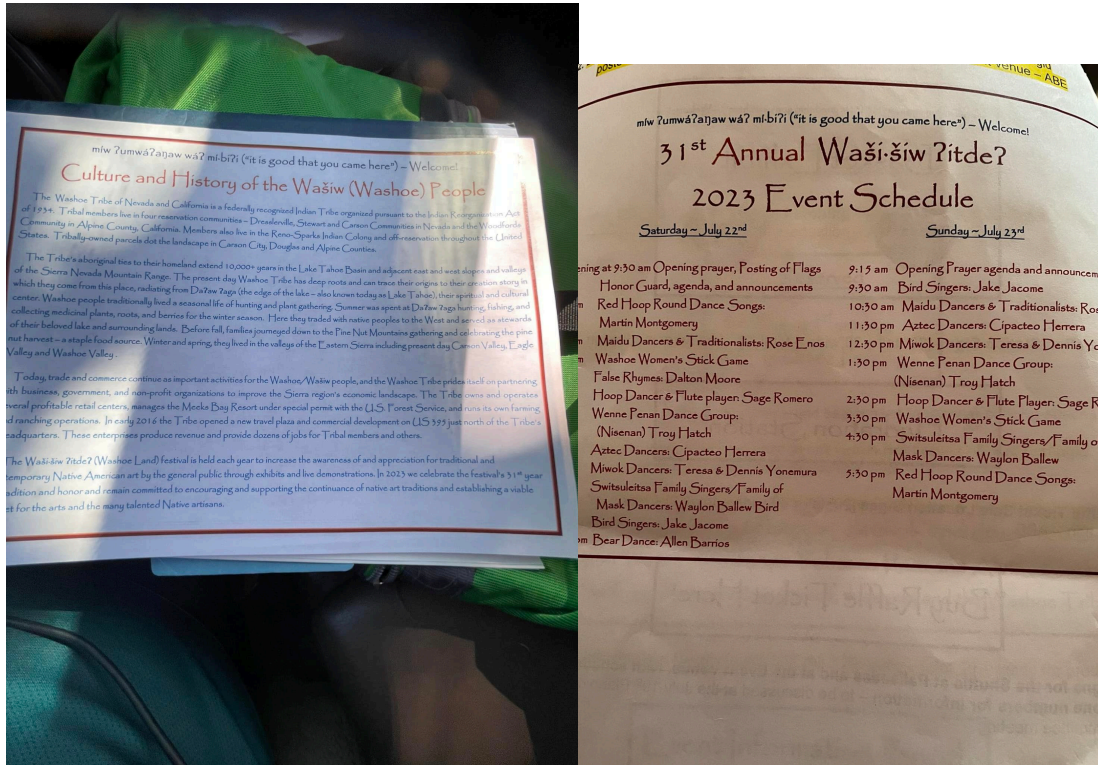 míw ʔumwáʔaŋaw wáʔ mí·biʔi (“it is good that you came here”) – Welcome!
Culture and History of the Wašiw (Washoe) People
The Washoe Tribe of Nevada and California is a federally recognized Indian Tribe organized pursuant to the Indian Reorganization Act
of 1934. Tribal members live in four reservation communities – Dresslerville, Stewart and Carson Communities in Nevada and the Woodfords
Community in Alpine County, California. Members also live in the Reno-Sparks Indian Colony and off-reservation throughout the United
States. Tribally-owned parcels dot the landscape in Carson City, Douglas and Alpine Counties.
The Tribe's aboriginal ties to their homeland extend 10,000+ years in the Lake Tahoe Basin and adjacent east and west slopes and valleys
of the Sierra Nevada Mountain Range. The present day Washoe Tribe has deep roots and can trace its origins to their creation story in
which they come from this place, radiating from Daʔaw ʔaga (the edge of the lake – also known today as Lake Tahoe), their spiritual and cultural
center. Washoe people traditionally lived a seasonal life of hunting and plant gathering. Summer was spent at Daʔaw ʔaga hunting, fishing, and
collecting medicinal plants, roots, and berries for the winter season. Here they traded with native peoples to the West and served as stewards
of their beloved lake and surrounding lands. Before fall, families journeyed down to the Pine Nut Mountains gathering and celebrating the pine
nut harvest – a staple food source. Winter and spring, they lived in the valleys of the Eastern Sierra including present day Carson Valley, Eagle
Valley and Washoe Valley.
Today, trade and commerce continue as important activities for the Washoe/Wašiw people, and the Washoe Tribe prides itself on partnering
ith business, government, and non-profit organizations to improve the Sierra region's economic landscape. The Tribe owns and operates
everal profitable retail centers, manages the Meeks Bay Resort under special permit with the U.S. Forest Service, and runs its own farming
d ranching operations. In early 2016 the Tribe opened a new travel plaza and commercial development on US 395 just north of the Tribe's
eadquarters. These enterprises produce revenue and provide dozens of jobs for Tribal members and others.
The Waší·šiw ʔitdeʔ (Washoe Land) festival is held each year to increase the awareness of and appreciation for traditional and
temporary Native American art by the general public through exhibits and live demonstrations. In 2023 we celebrate the festival's 31st year
adition and honor and remain committed to encouraging and supporting the continuance of native art traditions and establishing a viable
et for the arts and the many talented Native artisans.
venue – ABE
míw ʔumwáʔaŋaw wáʔ mí·biʔi (“it is good that you came here”) – Welcome!
31st Annual Waší·šíw ʔitdeʔ
2023 Event Schedule
Saturday ~ July 22nd
ening at 9:30 am Opening prayer, Posting of Flags
Honor Guard, agenda, and announcements
Red Hoop Round Dance Songs:
Martin Montgomery
Maidu Dancers & Traditionalists: Rose Enos
Washoe Women's Stick Game
False Rhymes: Dalton Moore
Hoop Dancer & Flute player: Sage Romero
Wenne Penan Dance Group:
(Nisenan) Troy Hatch
Aztec Dancers: Cipacteo Herrera
Miwok Dancers: Teresa & Dennis Yonemura
Switsuleitsa Family Singers/Family of
Mask Dancers: Waylon Ballew Bird
Bird Singers: Jake Jacome
pm Bear Dance: Allen Barrios
Sunday ~ July 23rd
9:15 am Opening Prayer agenda and announcem
9:30 am Bird Singers: Jake Jacome
10:30 am Maidu Dancers & Traditionalists: Ros
11:30 pm Aztec Dancers: Cipacteo Herrera
12:30 pm Miwok Dancers: Teresa & Dennis Yo
1:30 pm Wenne Penan Dance Group:
(Nisenan) Troy Hatch
2:30 pm Hoop Dancer & Flute Player: Sage R
3:30 pm Washoe Women's Stick Game
4:30 pm Switsuleitsa Family Singers/Family o
Mask Dancers: Waylon Ballew
5:30 pm Red Hoop Round Dance Songs:
Martin Montgomery
Buy Raffle Ticket Here!